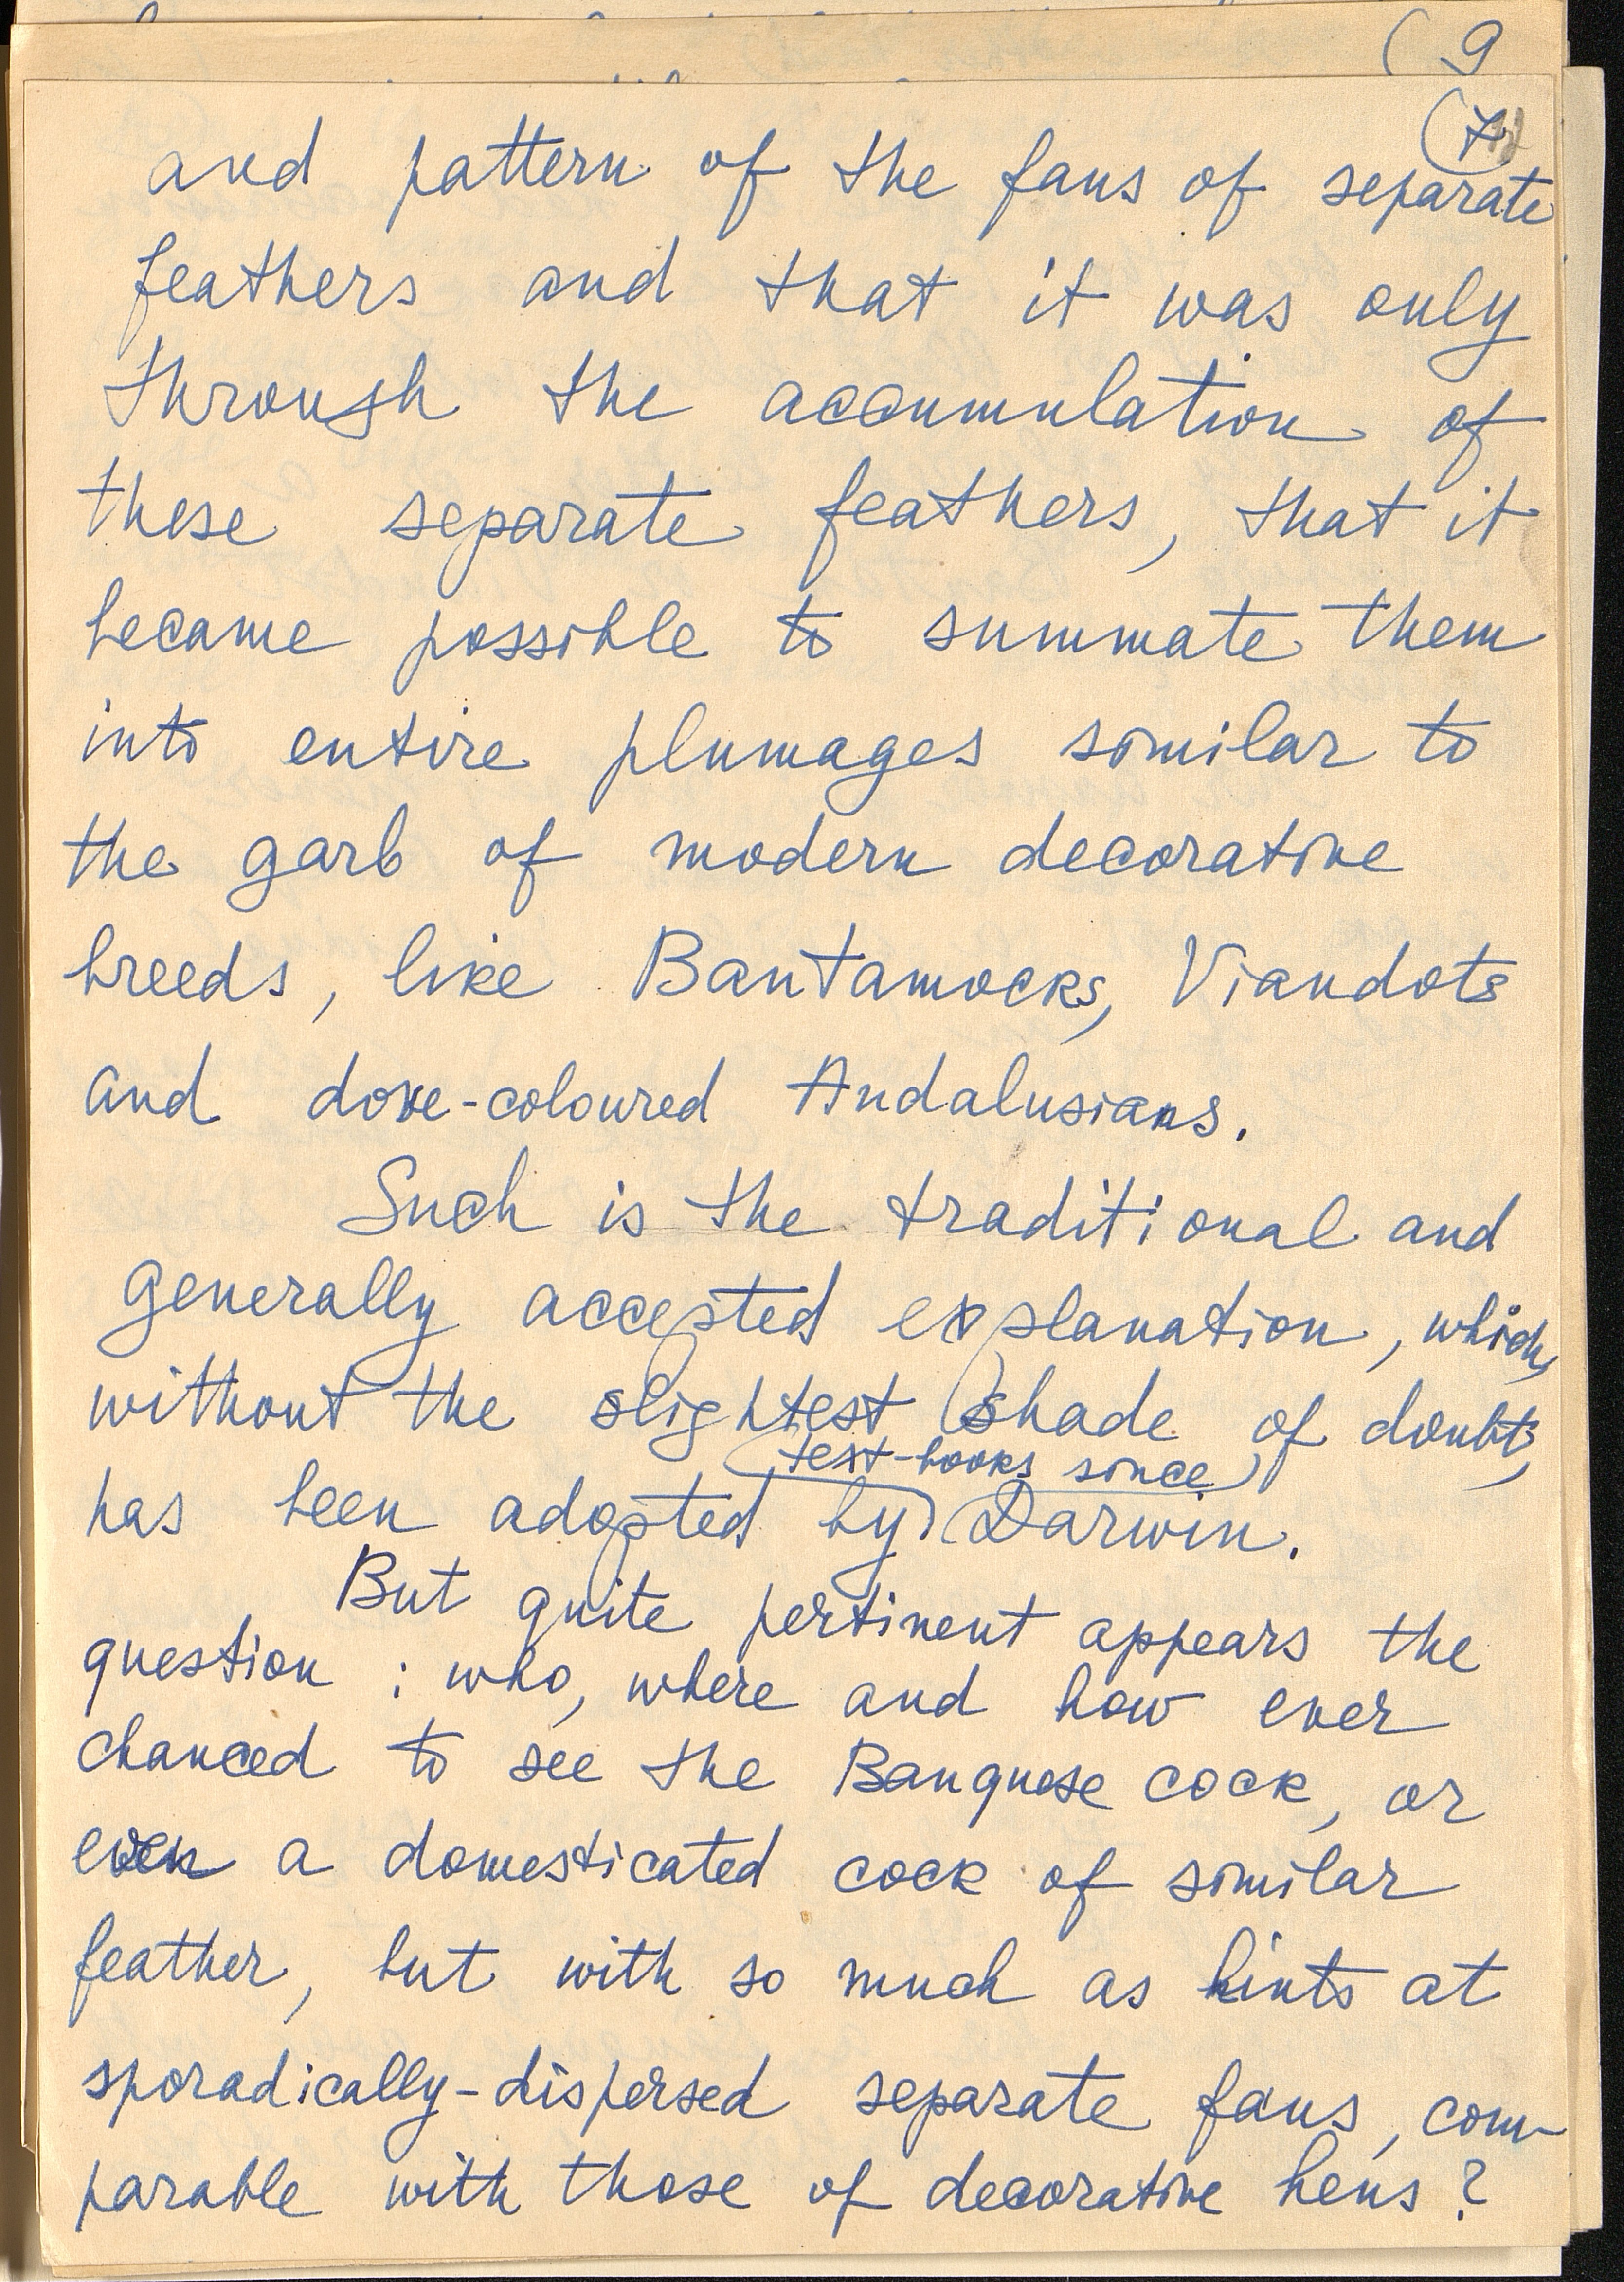 (9
(7
and pattern of the fans of separate
feathers and that it was only
through the accumulation of
these separate feathers, that it
became possible to summate them
into entire plumages similar to
the garb of modern decorative
breeds, like Bantamocks, Viandots
and dove-coloured Andalusians.
Such is the traditional and
generally accepted explanation, which,
without the slightest shade of doubt,
text-books since
has been adopted by Darwin.
But quite pertinent appears the
question : who, where and how ever
chanced to see the Banquese cock, or
even a domesticated cock of similar
feather, but with so much as hints at
sporadically-dispersed separate fans, com-
parable with those of decorative hens?